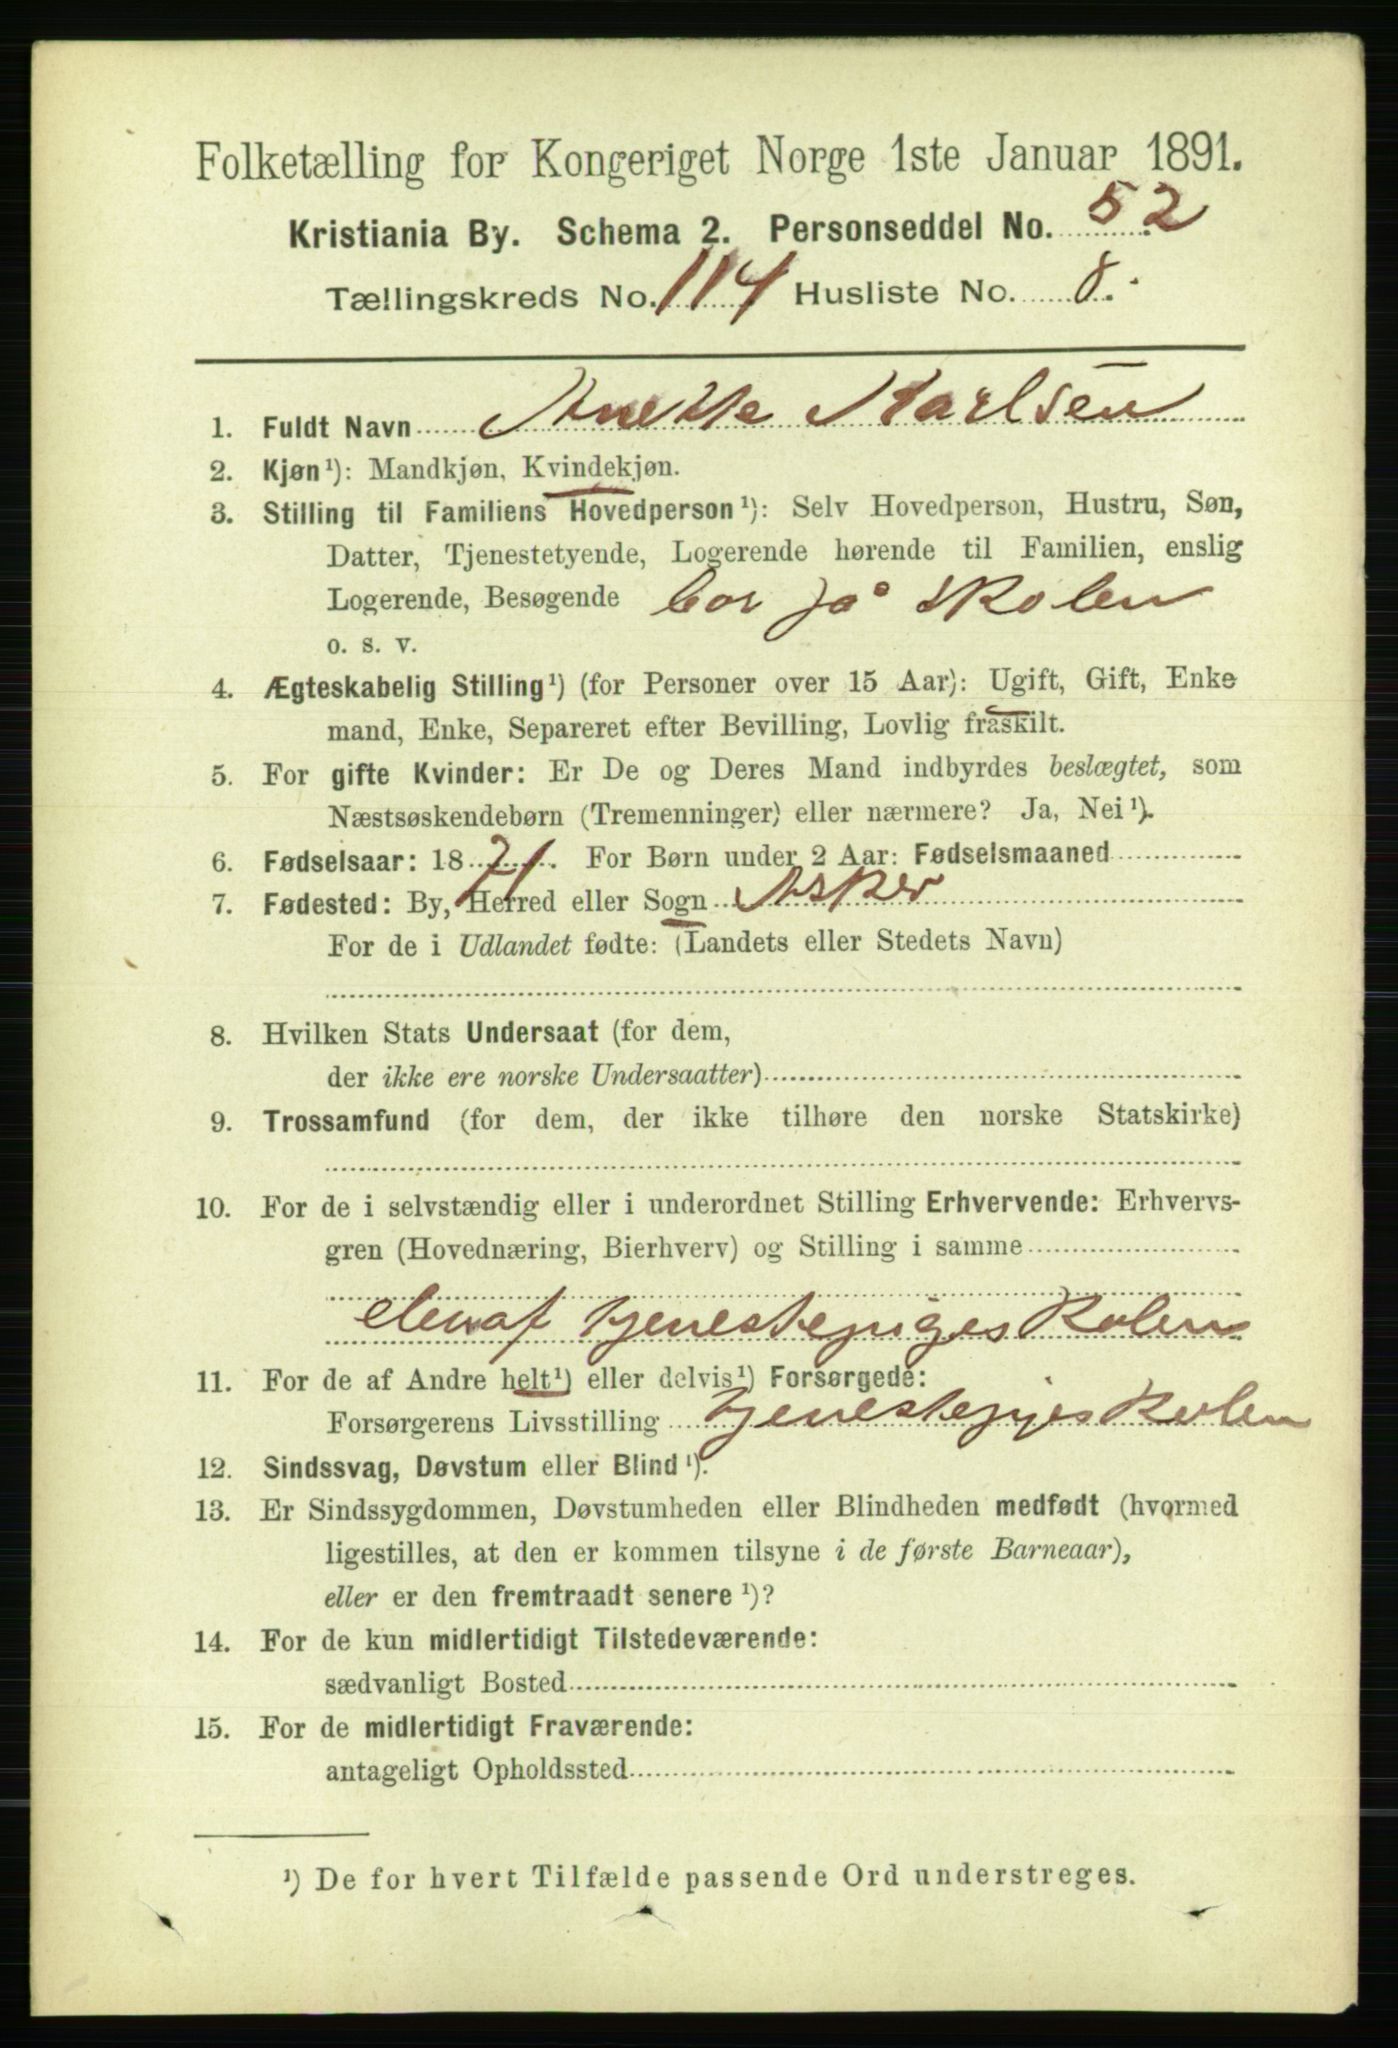 Folketælling for Kongeriget Norge 1ste Januar 1891.
Kristiania By. Schema 2. Personseddel No. 52
Tællingskreds No. 114 Husliste No. 8.
1. Fuldt Navn Anette Karlsen
2. Kjøn¹): Mandkjøn, Kvindekjøn.
3. Stilling til Familiens Hovedperson¹): Selv Hovedperson, Hustru, Søn,
Datter, Tjenestetyende, Logerende hørende til Familien, enslig
Logerende, Besøgende bor på skolen
o. s. v.
4. Ægteskabelig Stilling¹) (for Personer over 15 Aar): Ugift, Gift, Enke
mand, Enke, Separeret efter Bevilling, Lovlig fraskilt.
5. For gifte Kvinder: Er De og Deres Mand indbyrdes beslægtet, som
Næstsøskendebørn (Tremenninger) eller nærmere? Ja, Nei¹).
6. Fødselsaar: 1871. For Børn under 2 Aar: Fødselsmaaned
7. Fødested: By, Herred eller Sogn Asker
For de i Udlandet fødte: (Landets eller Stedets Navn)
8. Hvilken Stats Undersaat (for dem,
der ikke ere norske Undersaatter)
9. Trossamfund (for dem, der ikke tilhøre den norske Statskirke)
10. For de i selvstændig eller i underordnet Stilling Erhvervende: Erhvervs-
gren (Hovednæring, Bierhverv) og Stilling i samme
elev af tjenestepigeskolen
11. For de af Andre helt¹) eller delvis¹) Forsørgede:
Forsørgerens Livsstilling tjenestepigeskolen
12. Sindssvag, Døvstum eller Blind¹).
13. Er Sindssygdommen, Døvstumheden eller Blindheden medfødt (hvormed
ligestilles, at den er kommen tilsyne i de første Barneaar),
eller er den fremtraadt senere¹)?
14. For de kun midlertidigt Tilstedeværende:
sædvanligt Bosted
15. For de midlertidigt Fraværende:
antageligt Opholdssted
¹) De for hvert Tilfælde passende Ord understreges.